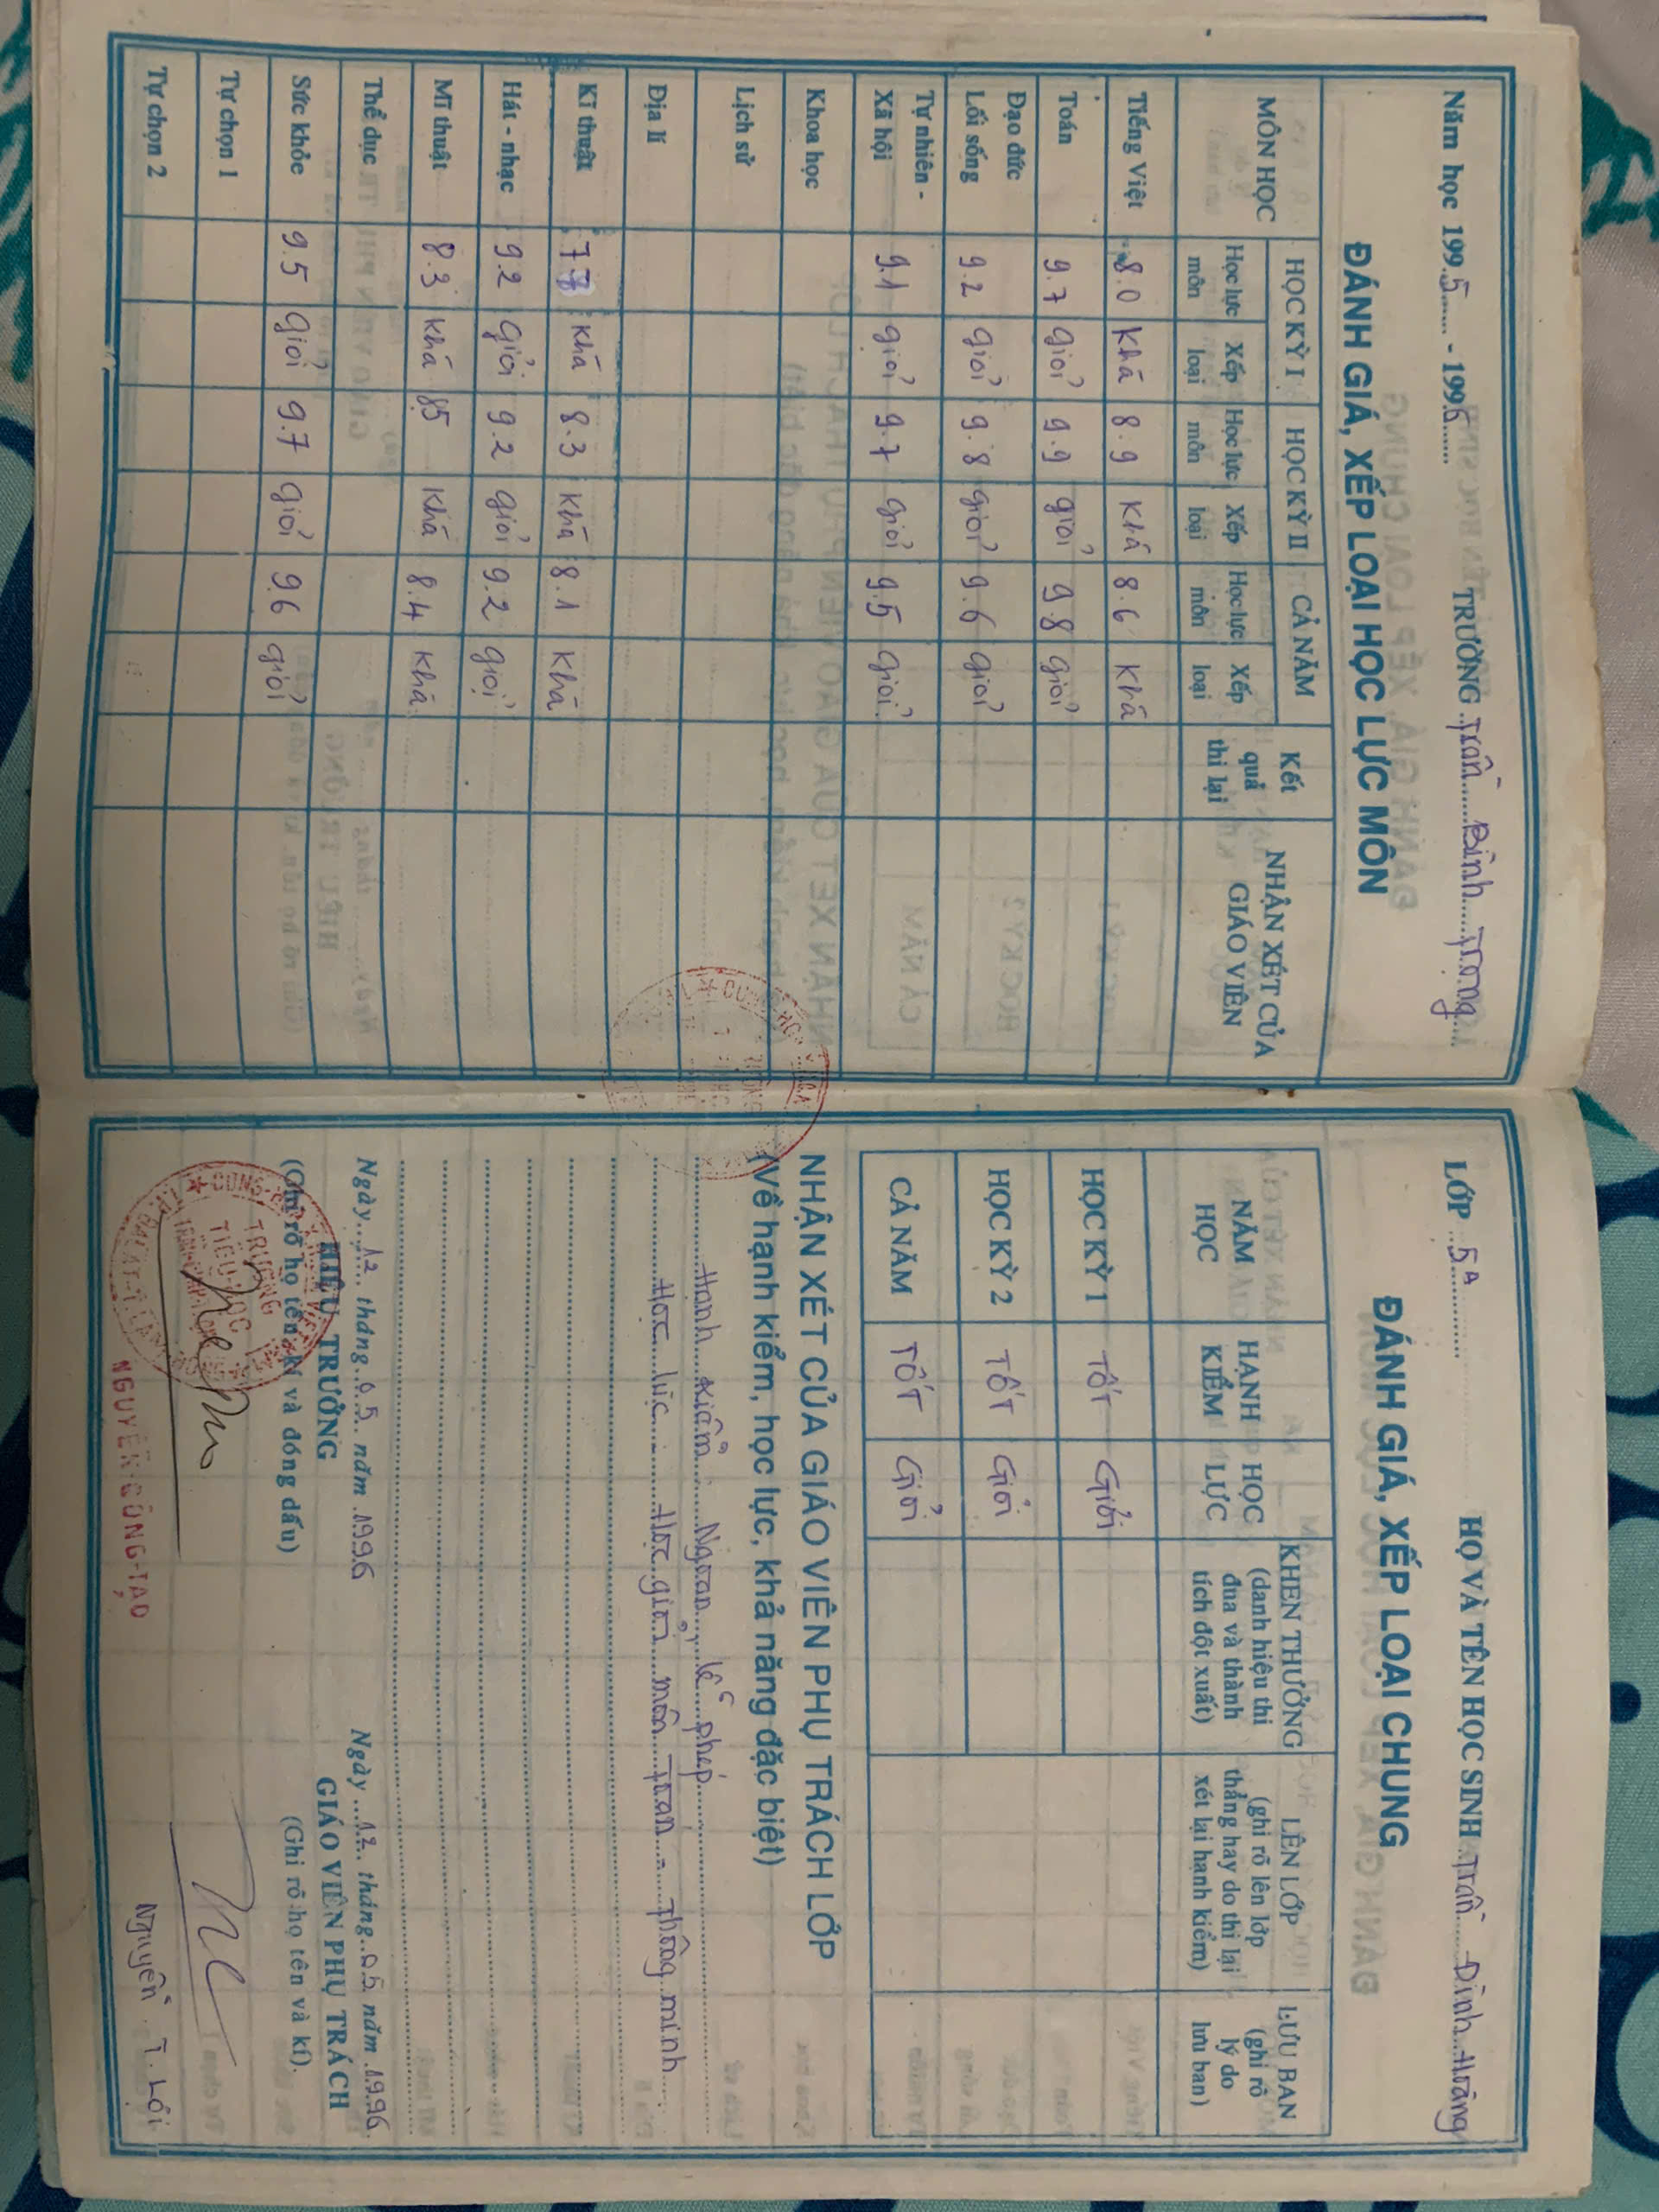 Năm học 1995 - 1996 TRƯỜNG Trần Bình Trọng
ĐÁNH GIÁ, XẾP LOẠI HỌC LỰC MÔN
MÔN HỌC HỌC KỲ I HỌC KỲ II CẢ NĂM Kết quả thi lại NHẬN XÉT CỦA GIÁO VIÊN
Học lực môn Xếp loại Học lực môn Xếp loại Học lực môn Xếp loại
Tiếng Việt 8.0 Khá 8.9 Khá 8.6 Khá
Toán 9.7 giỏi 9.9 giỏi 9.8 giỏi
Đạo đức Lối sống 9.2 giỏi 9.8 giỏi 9.6 giỏi
Tự nhiên - Xã hội 9.1 giỏi 9.7 giỏi 9.5 giỏi
Khoa học
Lịch sử
Địa lí
Kĩ thuật Khá 8.3 Khá 8.1 Khá
Hát - nhạc 9.2 giỏi 9.2 giỏi 9.2 giỏi
Mĩ thuật 8.3 Khá 8.5 Khá 8.4 Khá
Thể dục
Sức khỏe 9.5 giỏi 9.7 giỏi 9.6 giỏi
Tự chọn 1
Tự chọn 2
LỚP 5A HỌ VÀ TÊN HỌC SINH Trần Đình Hoàng
ĐÁNH GIÁ, XẾP LOẠI CHUNG
NĂM HỌC HẠNH KIỂM HỌC LỰC KHEN THƯỞNG (danh hiệu thi đua và thành tích đột xuất) LÊN LỚP (ghi rõ lên lớp thẳng hay do thi lại xét lại hạnh kiểm) LƯU BAN (ghi rõ lý do lưu ban)
HỌC KỲ 1 TỐT Giỏi
HỌC KỲ 2 TỐT Giỏi
CẢ NĂM TỐT Giỏi
NHẬN XÉT CỦA GIÁO VIÊN PHỤ TRÁCH LỚP
(Về hạnh kiểm, học lực, khả năng đặc biệt)
Hạnh kiểm: Ngoan, lễ phép
Học lực: Học giỏi môn Toan - Thông minh
Ngày 12 tháng 05 năm 1996 Ngày 12 tháng 05 năm 1996
HIỆU TRƯỞNG GIÁO VIÊN PHỤ TRÁCH
(Ghi rõ họ tên, kí và đóng dấu) (Ghi rõ họ tên và kí)
TRƯỜNG
TIỂU HỌC
NGUYỄN-CÔNG-TẠO Nguyễn T. Lội